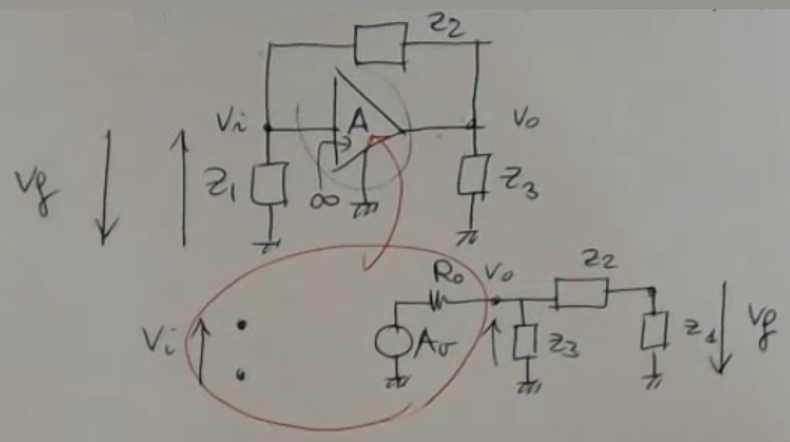 Z2
Vi A Vo
Vf Z1 ∞ Z3
Ro Vo Z2
Vi Av Z3 Z1 Vf